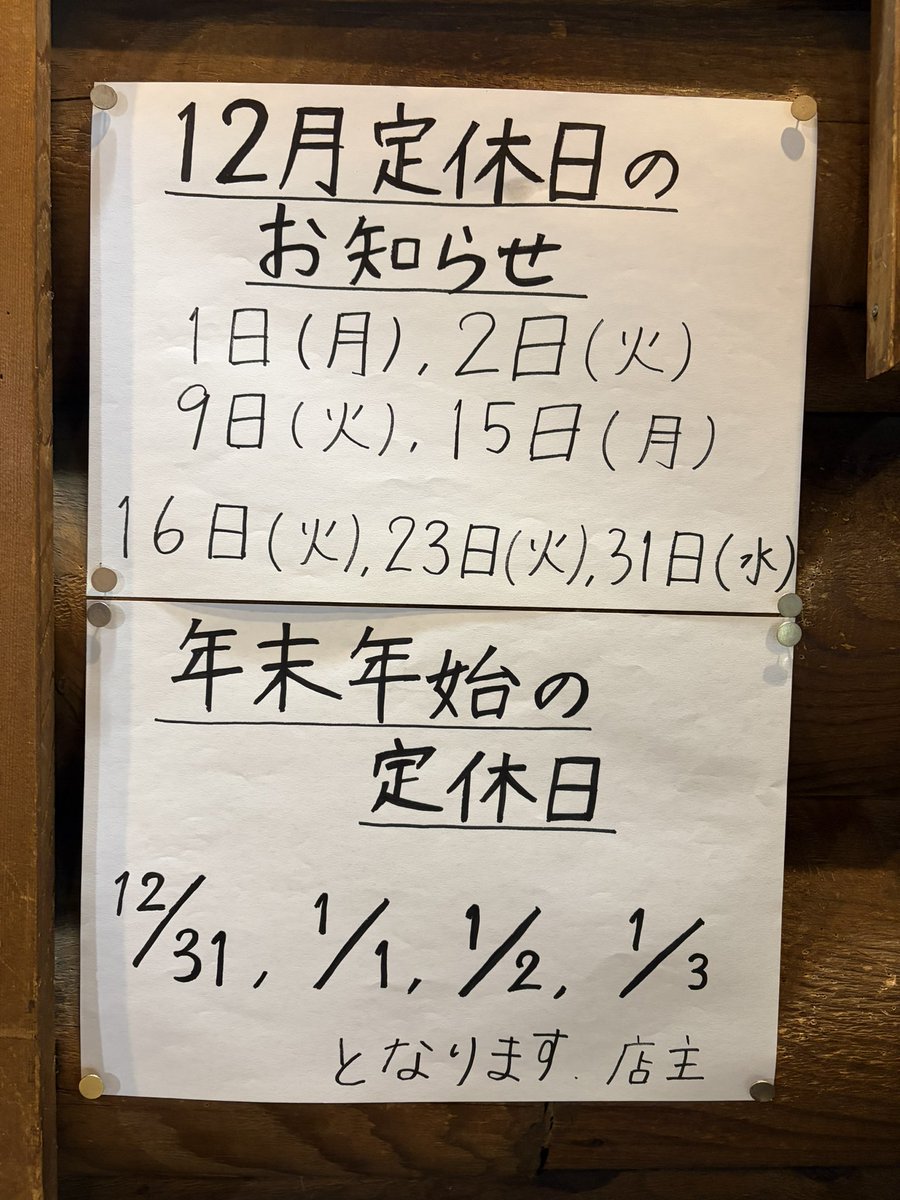 12月定休日の
お知らせ
1日(月), 2日(火)
9日(火), 15日(月)
16日(火), 23日(火), 31日(水)
年末年始の
定休日
12/31, 1/1, 1/2, 1/3
となります. 店主